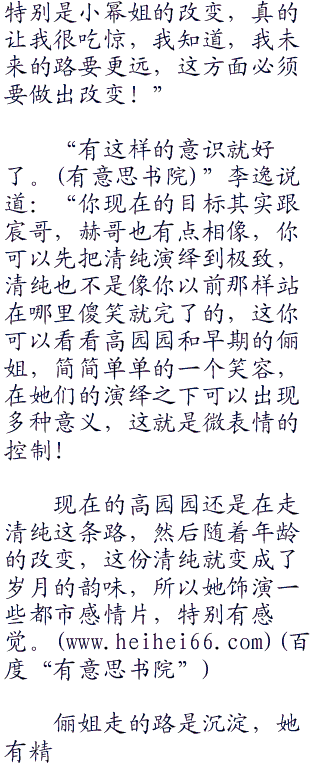 特别是小幂姐的改变，真的
让我很吃惊，我知道，我未
来的路要更远，这方面必须
要做出改变！”
“有这样的意识就好
了。(有意思书院)”李逸说
道：“你现在的目标其实跟
宸哥，赫哥也有点相像，你
可以先把清纯演绎到极致，
清纯也不是像你以前那样站
在哪里傻笑就完了的，这你
可以看看高园园和早期的俪
姐，简简单单的一个笑容，
在她们的演绎之下可以出现
多种意义，这就是微表情的
控制！
现在的高园园还是在走
清纯这条路，然后随着年龄
的改变，这份清纯就变成了
岁月的韵味，所以她饰演一
些都市感情片，特别有感
觉。(www.heihei66.com)(百
度“有意思书院”)
俪姐走的路是沉淀，她
有精